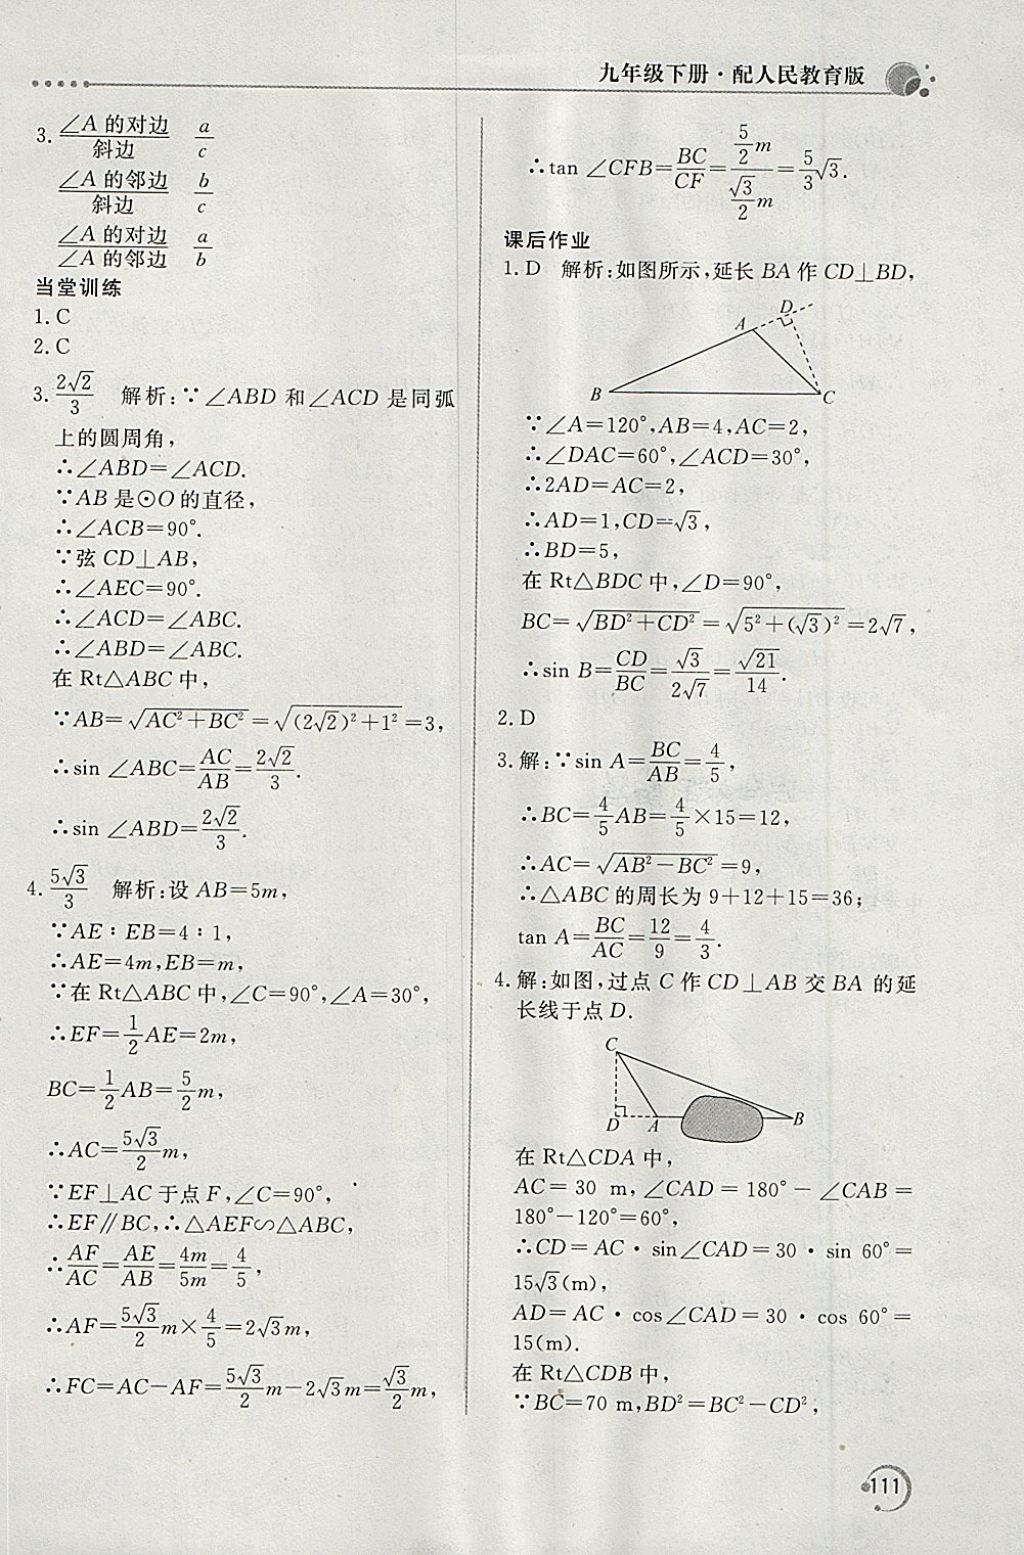 九年级下册·配人民教育版
3. ∠A的对边/斜边 a/c
∠A的邻边/斜边 b/c
∠A的对边/∠A的邻边 a/b
当堂训练
1. C
2. C
3. 2√2/3 解析:∵∠ABD和∠ACD是同弧
上的圆周角,
∴∠ABD=∠ACD.
∵AB是⊙O的直径,
∴∠ACB=90°.
∵弦CD⊥AB,
∴∠AEC=90°.
∴∠ACD=∠ABC.
∴∠ABD=∠ABC.
在Rt△ABC中,
∵AB=√(AC²+BC²)=√((2√2)²+1²)=3,
∴sin ∠ABC=AC/AB=2√2/3.
∴sin ∠ABD=2√2/3.
4. 5√3/3 解析:设AB=5m,
∵AE:EB=4:1,
∴AE=4m,EB=m,
∵在Rt△ABC中,∠C=90°,∠A=30°,
∴EF=1/2AE=2m,
BC=1/2AB=5/2m,
∴AC=5√3/2m,
∵EF⊥AC于点F,∠C=90°,
∴EF∥BC,∴△AEF∽△ABC,
∴AF/AC=AE/AB=4m/5m=4/5,
∴AF=5√3/2m×4/5=2√3m,
∴FC=AC−AF=5√3/2m−2√3m=√3/2m,
∴tan ∠CFB=BC/CF=(5/2m)/(√3/2m)=5/3√3.
课后作业
1. D 解析:如图所示,延长BA作CD⊥BD,
D
A
B
C
∵∠A=120°,AB=4,AC=2,
∴∠DAC=60°,∠ACD=30°,
∴2AD=AC=2,
∴AD=1,CD=√3,
∴BD=5,
在Rt△BDC中,∠D=90°,
BC=√(BD²+CD²)=√(5²+(√3)²)=2√7,
∴sin B=CD/BC=√3/2√7=√21/14.
2. D
3. 解:∵sin A=BC/AB=4/5,
∴BC=4/5AB=4/5×15=12,
∴AC=√(AB²−BC²)=9,
∴△ABC的周长为9+12+15=36;
tan A=BC/AC=12/9=4/3.
4. 解:如图,过点C作CD⊥AB交BA的延
长线于点D.
C
D A B
在Rt△CDA中,
AC=30 m,∠CAD=180°−∠CAB=
180°−120°=60°,
∴CD=AC·sin∠CAD=30·sin 60°=
15√3(m),
AD=AC·cos∠CAD=30·cos 60°=
15(m).
在Rt△CDB中,
∵BC=70 m,BD²=BC²−CD²,
111